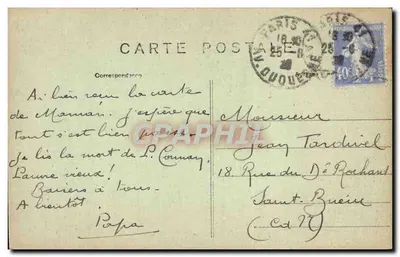 CARTE POSTALE
Correspondance
Ai bien reçu la carte
de Maman. J'espère que
tout s'est bien passé.
Je lis la mort de L. Connan,
Pauvre vieux!
Baisers à tous.
A bientôt.
Papa
Monsieur
Jean Tardivel
18 Rue du Dr Rochard
Saint-Brieuc
(CdN)
PARIS
18 30
25 - 8
AV. DUQUESNE
40c
CPAPHIL